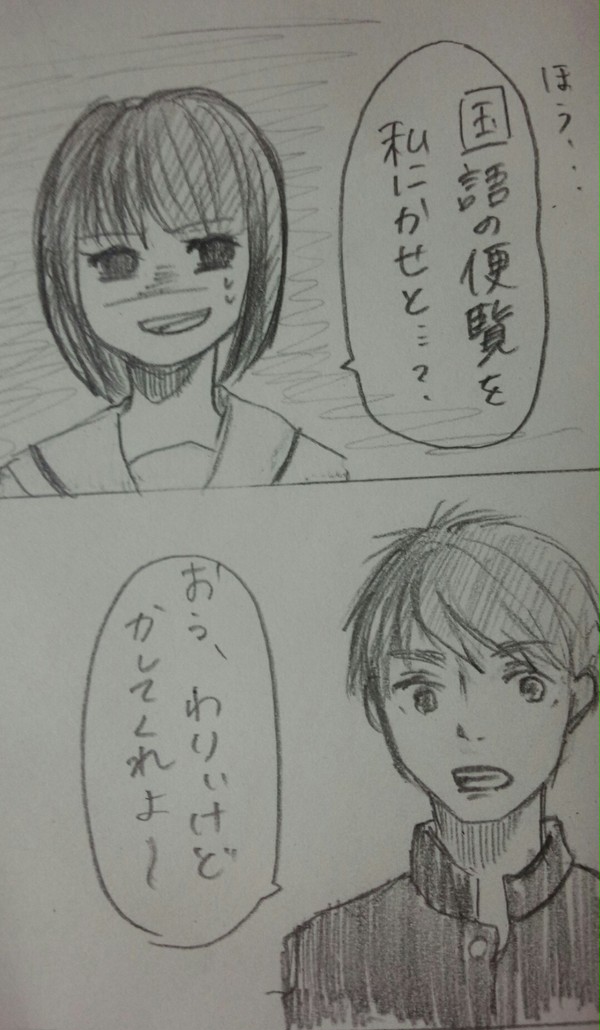 ほう、・・
国語の便覧を
私にかせと…?
おう、わりぃけど
かしてくれよ〜